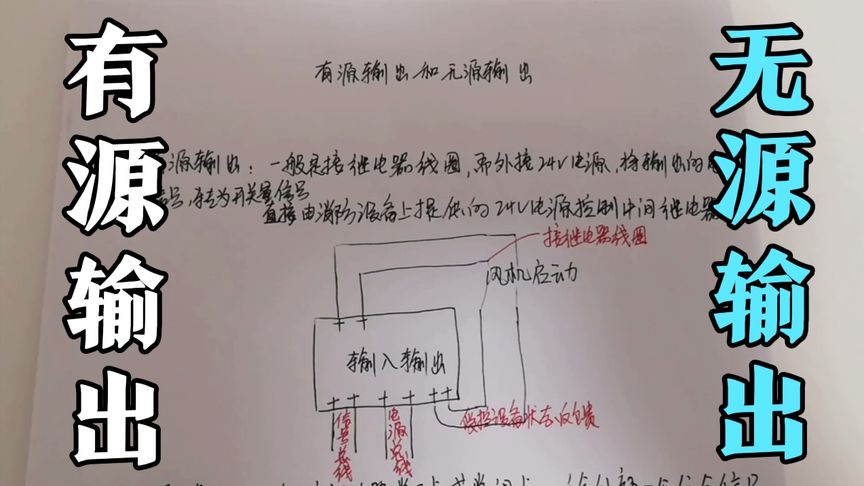 有源输出
无源输出
有源输出和无源输出
源输出：一般是接继电器线圈，而外接24V电源，将输出的
信号，转为开关量信号
直接由消防设备上提供的24V电源控制中间继电器
接继电器线圈
风机启动
输入输出
信号总线
电源总线
被控设备状态反馈